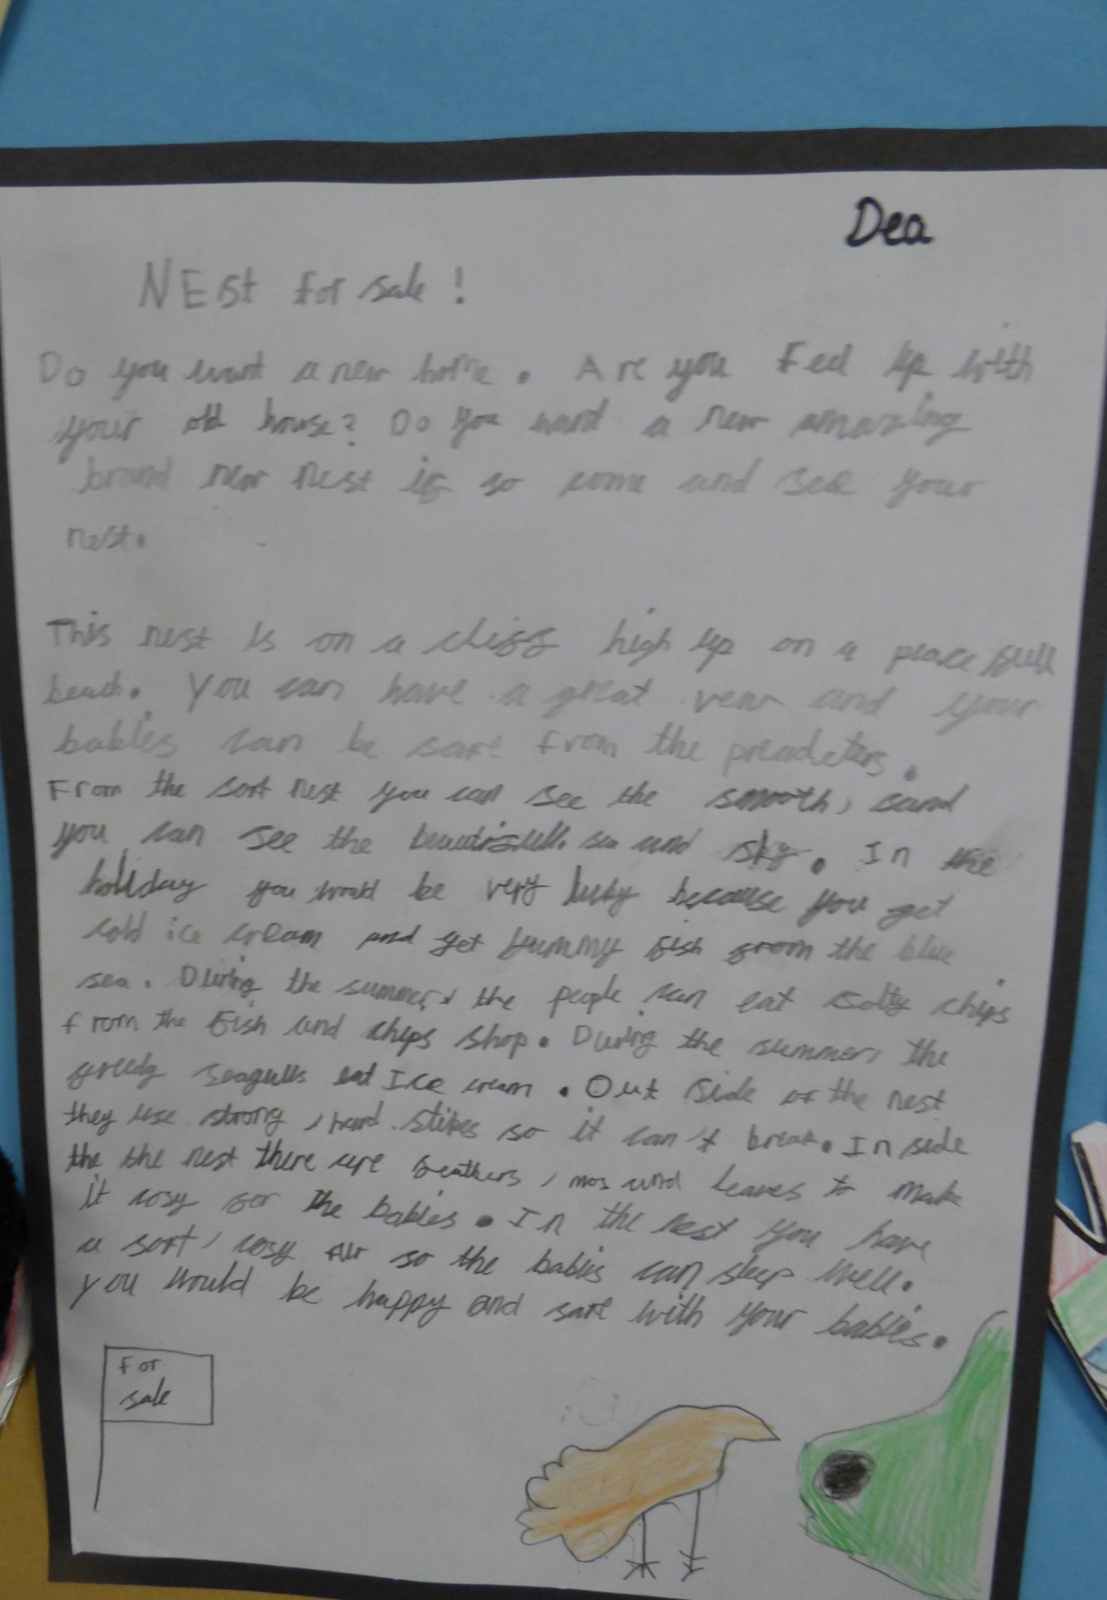 Dea
NEst for sale !
Do you want a new home . Are you Fed up with
your old house? Do you want a new amazing
brand new nest if so come and see your
nest.
This nest is on a cliff high up on a peace full
beach. You can have a great veiw and your
babies can be safe from the preadeters.
From the soft nest you can see the smooth, sand
you can see the beautifull sea and sky. In the
holiday you would be very luky because you get
cold ice cream and get yummy fish from the blue
sea. During the summer, the people can eat salty chips
from the Fish and chips shop. During the summer, the
greedy seagulls eat Ice cream . Out side of the nest
they use strong , hard stikes so it can't break. In side
the the nest there are feathers , mos and leaves to make
it cosy for the babies. In the nest you have
a soft, cosy so the babies can sleep well.
you would be happy and safe with your babies.
For
sale